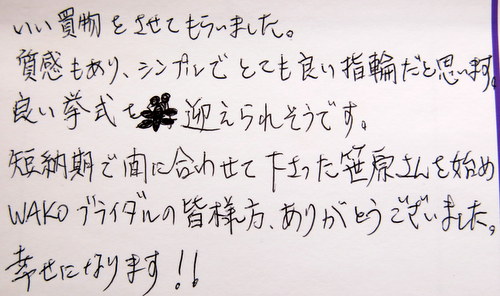 いい買物をさせてもらいました。
質感もあり、シンプルでとても良い指輪だと思います。
良い挙式を迎えられそうです。
短納期で間に合わせて下さった笹原さんを始め
WAKOブライダルの皆様方、ありがとうございました。
幸せになります!!